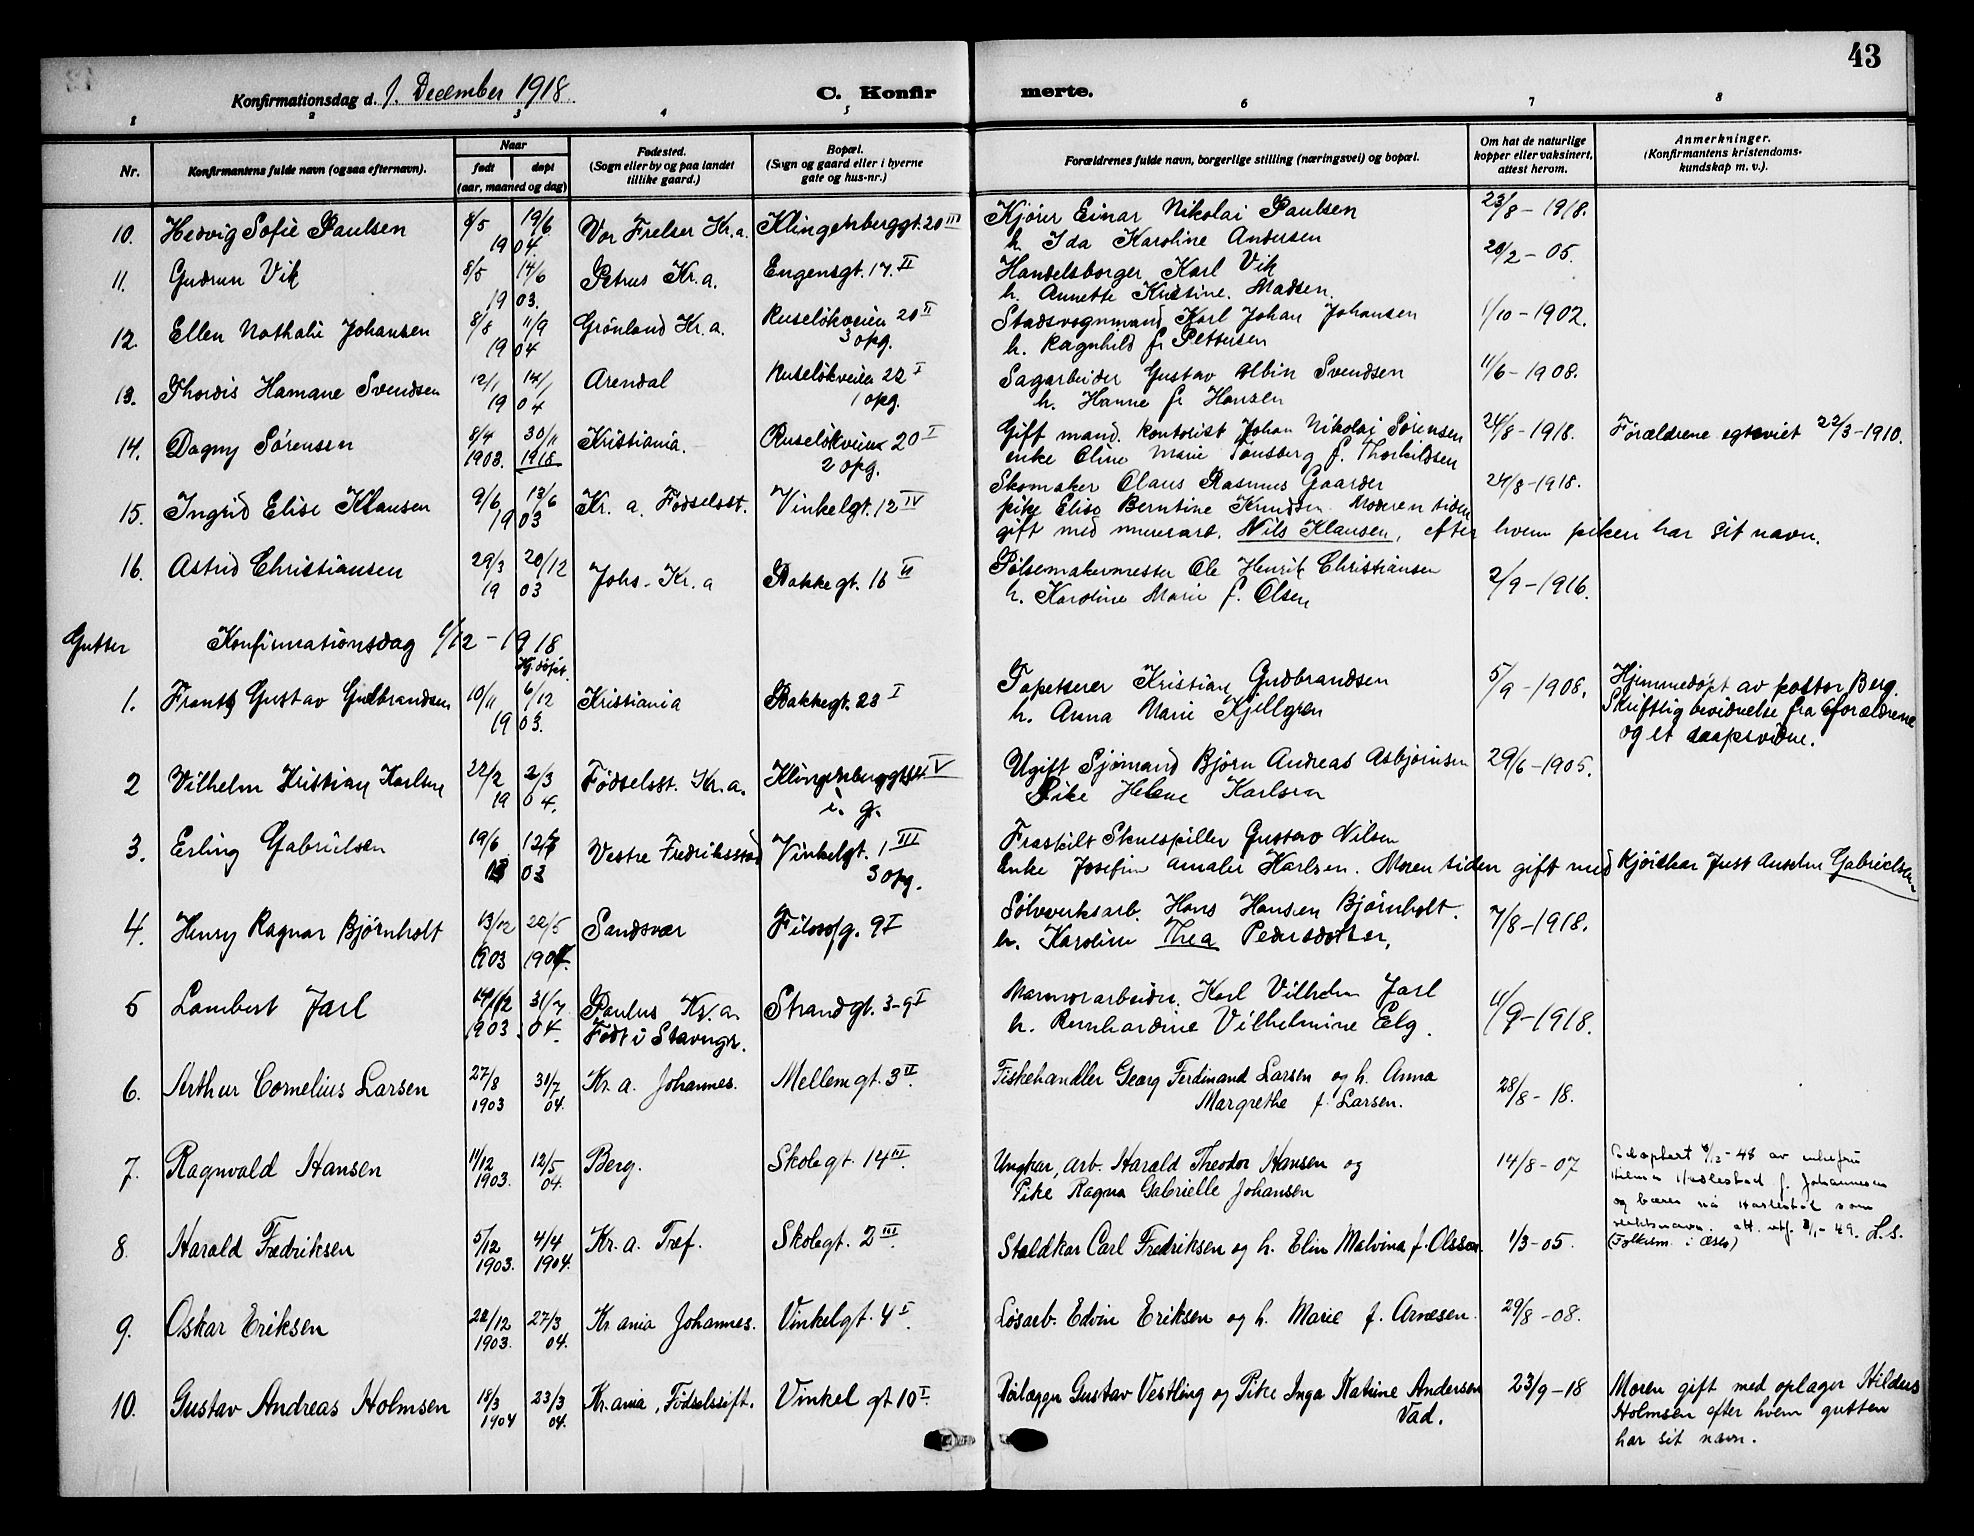 43
Konfirmationsdag d. 1. December 1918. C. Konfirmerte.
1 2 3 4 5 6 7 8
Nr. Konfirmantens fulde navn (ogsaa efternavn). Naar født døpt (aar, maaned og dag) Fødested. (Sogn eller by og paa landet tillike gaard.) Bopæl. (Sogn og gaard eller i byerne gate og hus-nr.) Forældrenes fulde navn, borgerlige stilling (næringsvei) og bopæl. Om hat de naturlige kopper eller vaksinert, attest herom. Anmerkninger. (Konfirmantens kristendoms-kundskap m. v.).
10. Hedvig Sofie Paulsen 8/5 19/6 1904 Vor Frelser Kr.a. Klingenberggt. 20 III Kjører Einar Nikolai Paulsen 23/8-1918.
h. Ida Karoline Andersen
11. Gudrun Vik 8/5 14/6 1903. Petrus Kr.a. Engensgt. 17. II Handelsborger Karl Vik 28/2-05.
h. Annette Kristine Madsen.
12. Ellen Nathalie Johansen 8/8 11/9 1904 Grönland Kr.a. Ruseløkveien 20 II 3 opg. Stadsvognmand Karl Johan Johansen 1/10-1902.
h. Ragnhild f. Pettersen
13. Thordis Hamane Svendsen 12/1 14/1 1904 Arendal Ruseløkveien 22 I 1 opg. Sagarbeider Gustav Albin Svendsen 11/6-1908.
h. Hanne f. Hansen
14. Dagny Sørensen 8/4 1903. 30/11 1918 Kristiania. Ruseløkveien 20 I 2 opg. Gift mand. kontorist Johan Nikolai Sørensen 24/8-1918. Forældrene egteviet 22/3-1910.
enke Oline Marie Tønsberg f. Thorkildsen
15. Ingrid Elise Klausen 9/6 13/6 1903 Kr.a. Fødselsst. Vinkelgt. 12 IV Skomaker Olaus Rasmus Gaarder 24/8-1918.
pike Elise Berntine Knudsen. Moderen siden
gift med murerarb. Nils Klausen, efter hvem piken har sit navn.
16. Astrid Christiansen 29/3 20/12 1903 Johs. Kr.a Bakkegt. 16 II Pølsemakermester Ole Henrik Christiansen 2/9-1916.
h. Karoline Marie f. Olsen
Gutter Konfirmationsdag 1/12-1918
Hj.døpt.
1. Frants Gustav Gudbrandsen 10/11 6/12 1903. Kristiania Bakkegt. 23 I Tapetserer Kristian Gudbrandsen 5/9-1908. Hjemmedøpt av pastor Berg.
h. Anna Marie Kjellgren Skriftlig bevidnelse fra forældrene
og et daapsvidne.
2 Vilhelm Kristian Karlsen 22/2 2/3 1904. Fødselsst. Kr.a. V i. g. Ugift Sjømand Bjørn Andreas Asbjørnsen 29/6-1905.
Pike Helene Karlsen
3. Erling Gabrielsen 19/6 03 Vestre Fredriksstad Vinkelgt. 1 III 3 opg. Fraskilt Skuespiller Gustav Nilsen
Enke Josefine Amalie Karlsen. Moren siden gift med Just Anselm Gabrielsen
4. Henry Ragnar Bjørnholt 13/12 1903 22/5 1904. Sandsvær Filosofg. 9 I Sølvverksarb. Hans Hansen Bjørnholt. 7/8-1918.
h. Karoline Thea Pedersdotter,
5 Lambert Jarl 1903 31/7 04. Paulus Kr.a. Strandgt. 3-9 I Marmorarbeider. Karl Vilhelm Jarl 11/9-1918.
Født i Stavngr. h. Bernhardine Vilhelmine Elg.
6. Arthur Cornelius Larsen 27/8 1903 31/7 04. Kr.a. Johannes. Mellemgt. 3 II. Fiskehandler Georg Ferdinand Larsen og h. Anna 28/8-18.
Margrethe f. Larsen.
7. Ragnvald Hansen 11/12 1903. 12/5 04. Berg. Skolegt. 14 III. Ungkar, arb. Harald Theodor Hansen og 14/8-07 av enkefru
Pike Ragna Gabrielle Johansen f. Johannesen
og bærer nå som
slektsnavn. att. utf. 49. L.S.
8. Harald Fredriksen 5/12 1903. 4/4 1904. Kr.a. Tref. Skolegt. 2 III. Staldkar Carl Fredriksen og h. Elin Malvina f. Olsson. 1/3-05.
9. Oskar Eriksen 22/12 1903. 27/3 04. Kr.ania Johannes. Vinkelgt. 4 I. Løsarb. Edvin Eriksen og h. Marie f. Arnesen. 29/8-08.
10. Gustav Andreas Holmsen 18/3 1904 23/3 04. Kr.ania, Fødselsstift. Vinkel gt 10 I. Rørlægger Gustav Vestling og Pike Inga Katrine Andersen 23/9-18 Moren gift med oplager
Vad. Holmsen efter hvem gutten
har sit navn.